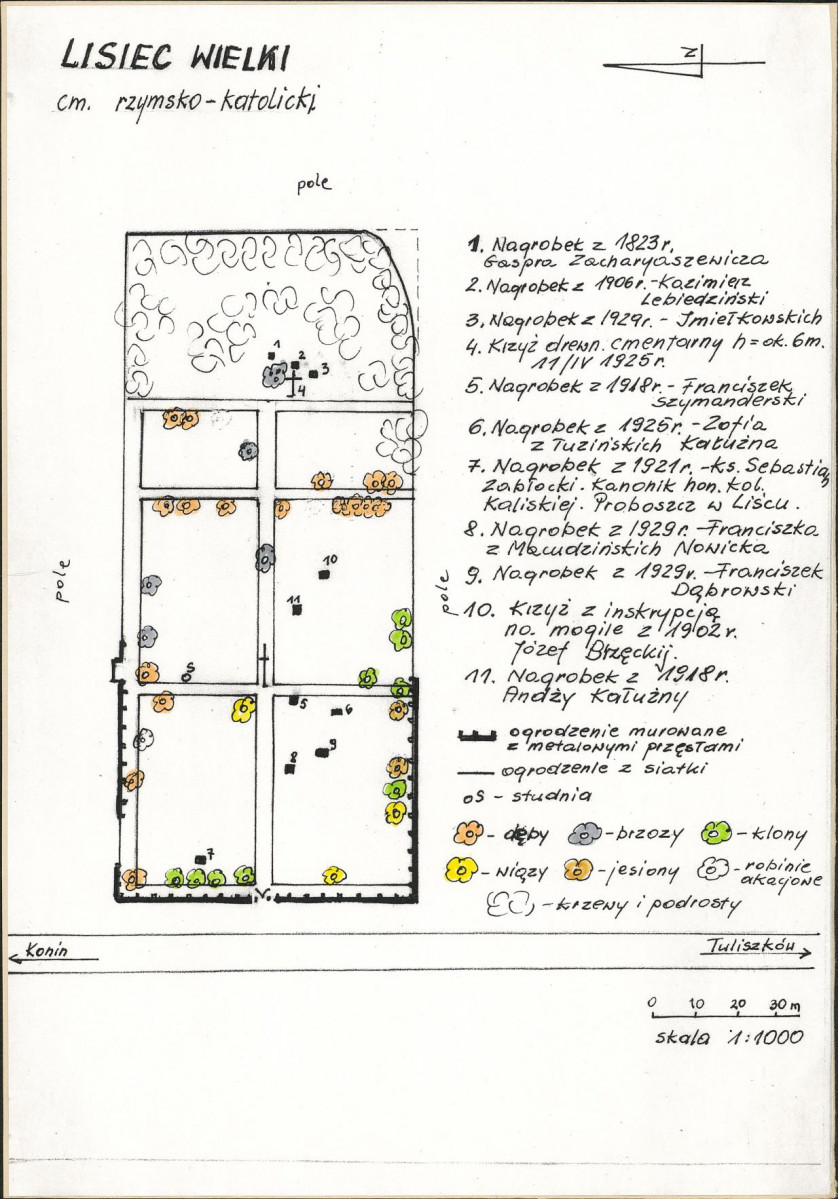 LISIEC WIELKI
cm. rzymsko-katolicki
N
pole
1. Nagrobek z 1823r.
Gaspra Zacharyaszewicza
2. Nagrobek z 1906r.-Kazimierz
Lebiedziński
3. Nagrobek z 1929r. - Jmiełkowskich
4. Krzyż drewn. cmentarny h=ok. 6m.
11/IV 1925r.
5. Nagrobek z 1918r.- Franciszek
Szymanderski
6. Nagrobek z 1925r. -Zofia
z Tuzińskich Kałużna
7. Nagrobek z 1921r.-Ks. Sebastian
Zabłocki. Kanonik hon. kol.
Kaliskiej. Proboszcz w Liścu.
8. Nagrobek z 1929r. -Franciszka
z Macudzińskich Nowicka
9. Nagrobek z 1929r. -Franciszek
Dąbrowski
10. Krzyż z inskrypcją
na mogile z 1902r.
Józef Brzęckij.
11. Nagrobek z 1918r.
Andży Kałużny
ogrodzenie murowane
z metalowymi przęsłami
ogrodzenie z siatki
oS - studnia
- dęby - brzozy - klony
- wiązy - jesiony - robinie
akacjowe
- krzewy i podrosty
1
2
3
4
pole
pole
10
11
S
5
6
9
8
7
Konin
Tuliszków
0 10 20 30 m
skala 1:1000